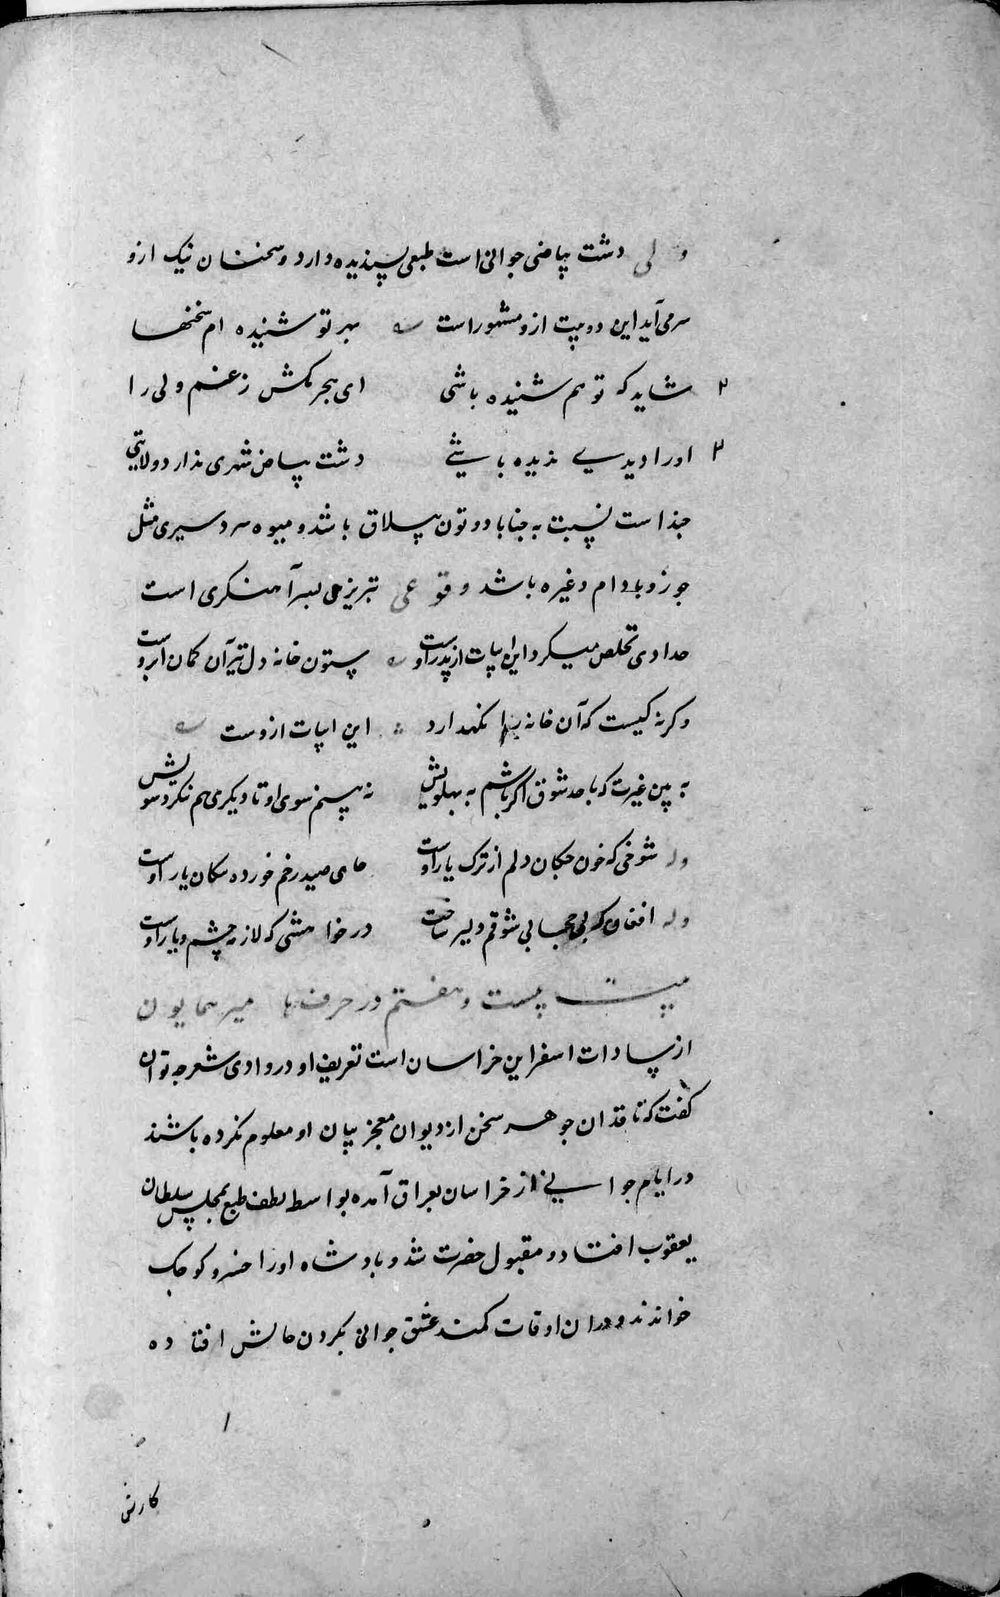 ولی دشت بیاضی جوانی است طبعی پسندیده دارد و سخنان نیک ازو
سرمی آید این دو بیت ازو مشهور است مهر تو شنیده ام سخنها
شاید که تو هم شنیده باشی ای هجر مکش ز غم ولی را
او را دیدی ندیده باشی دشت بیاض شهری ندارد ولایتی
چند است نسبت به جناباد و تون ییلاق باشد و میوه سردسیری مثل
جوز و بادام و غیره باشد وقوعی تبریزی پسر آهنگری است
حدادی تخلص میکرد این ابیات از پدر اوست ستون خانه دل تیر آن کمان ابروست
وگرنه کیست که آن خانه را نگهدارد این ابیات ازوست
به بین غیرت که با صد شوق اگر باشم به پهلویش نه بینم سوی او تا دیگری هم ننگرد سویش
وله شوخی که خون چکان دلم از ترک یار اوست جای صید زخم خورده سکان یار اوست
وله افغان که بی حجابی شوقم دلیر ساخت در خواهشی که لازمه چشم یار اوست
بیت بیست و هفتم در حرف ها میر همایون
از سادات اسفراین خراسان است تعریف او در وادی شعر چه توان
گفت که ناقدان جوهر سخن از دیوان معجز بیان او معلوم کرده باشند
در ایام جوانی از خراسان بعراق آمده بواسط لطف طبع بمجلس سلطان
یعقوب افتاد و مقبول حضرت شد و بادشاه او را خسرو کوچک
خواندند و در آن اوقات کمند عشق جوانی بکردن حالش افتاده
کارش